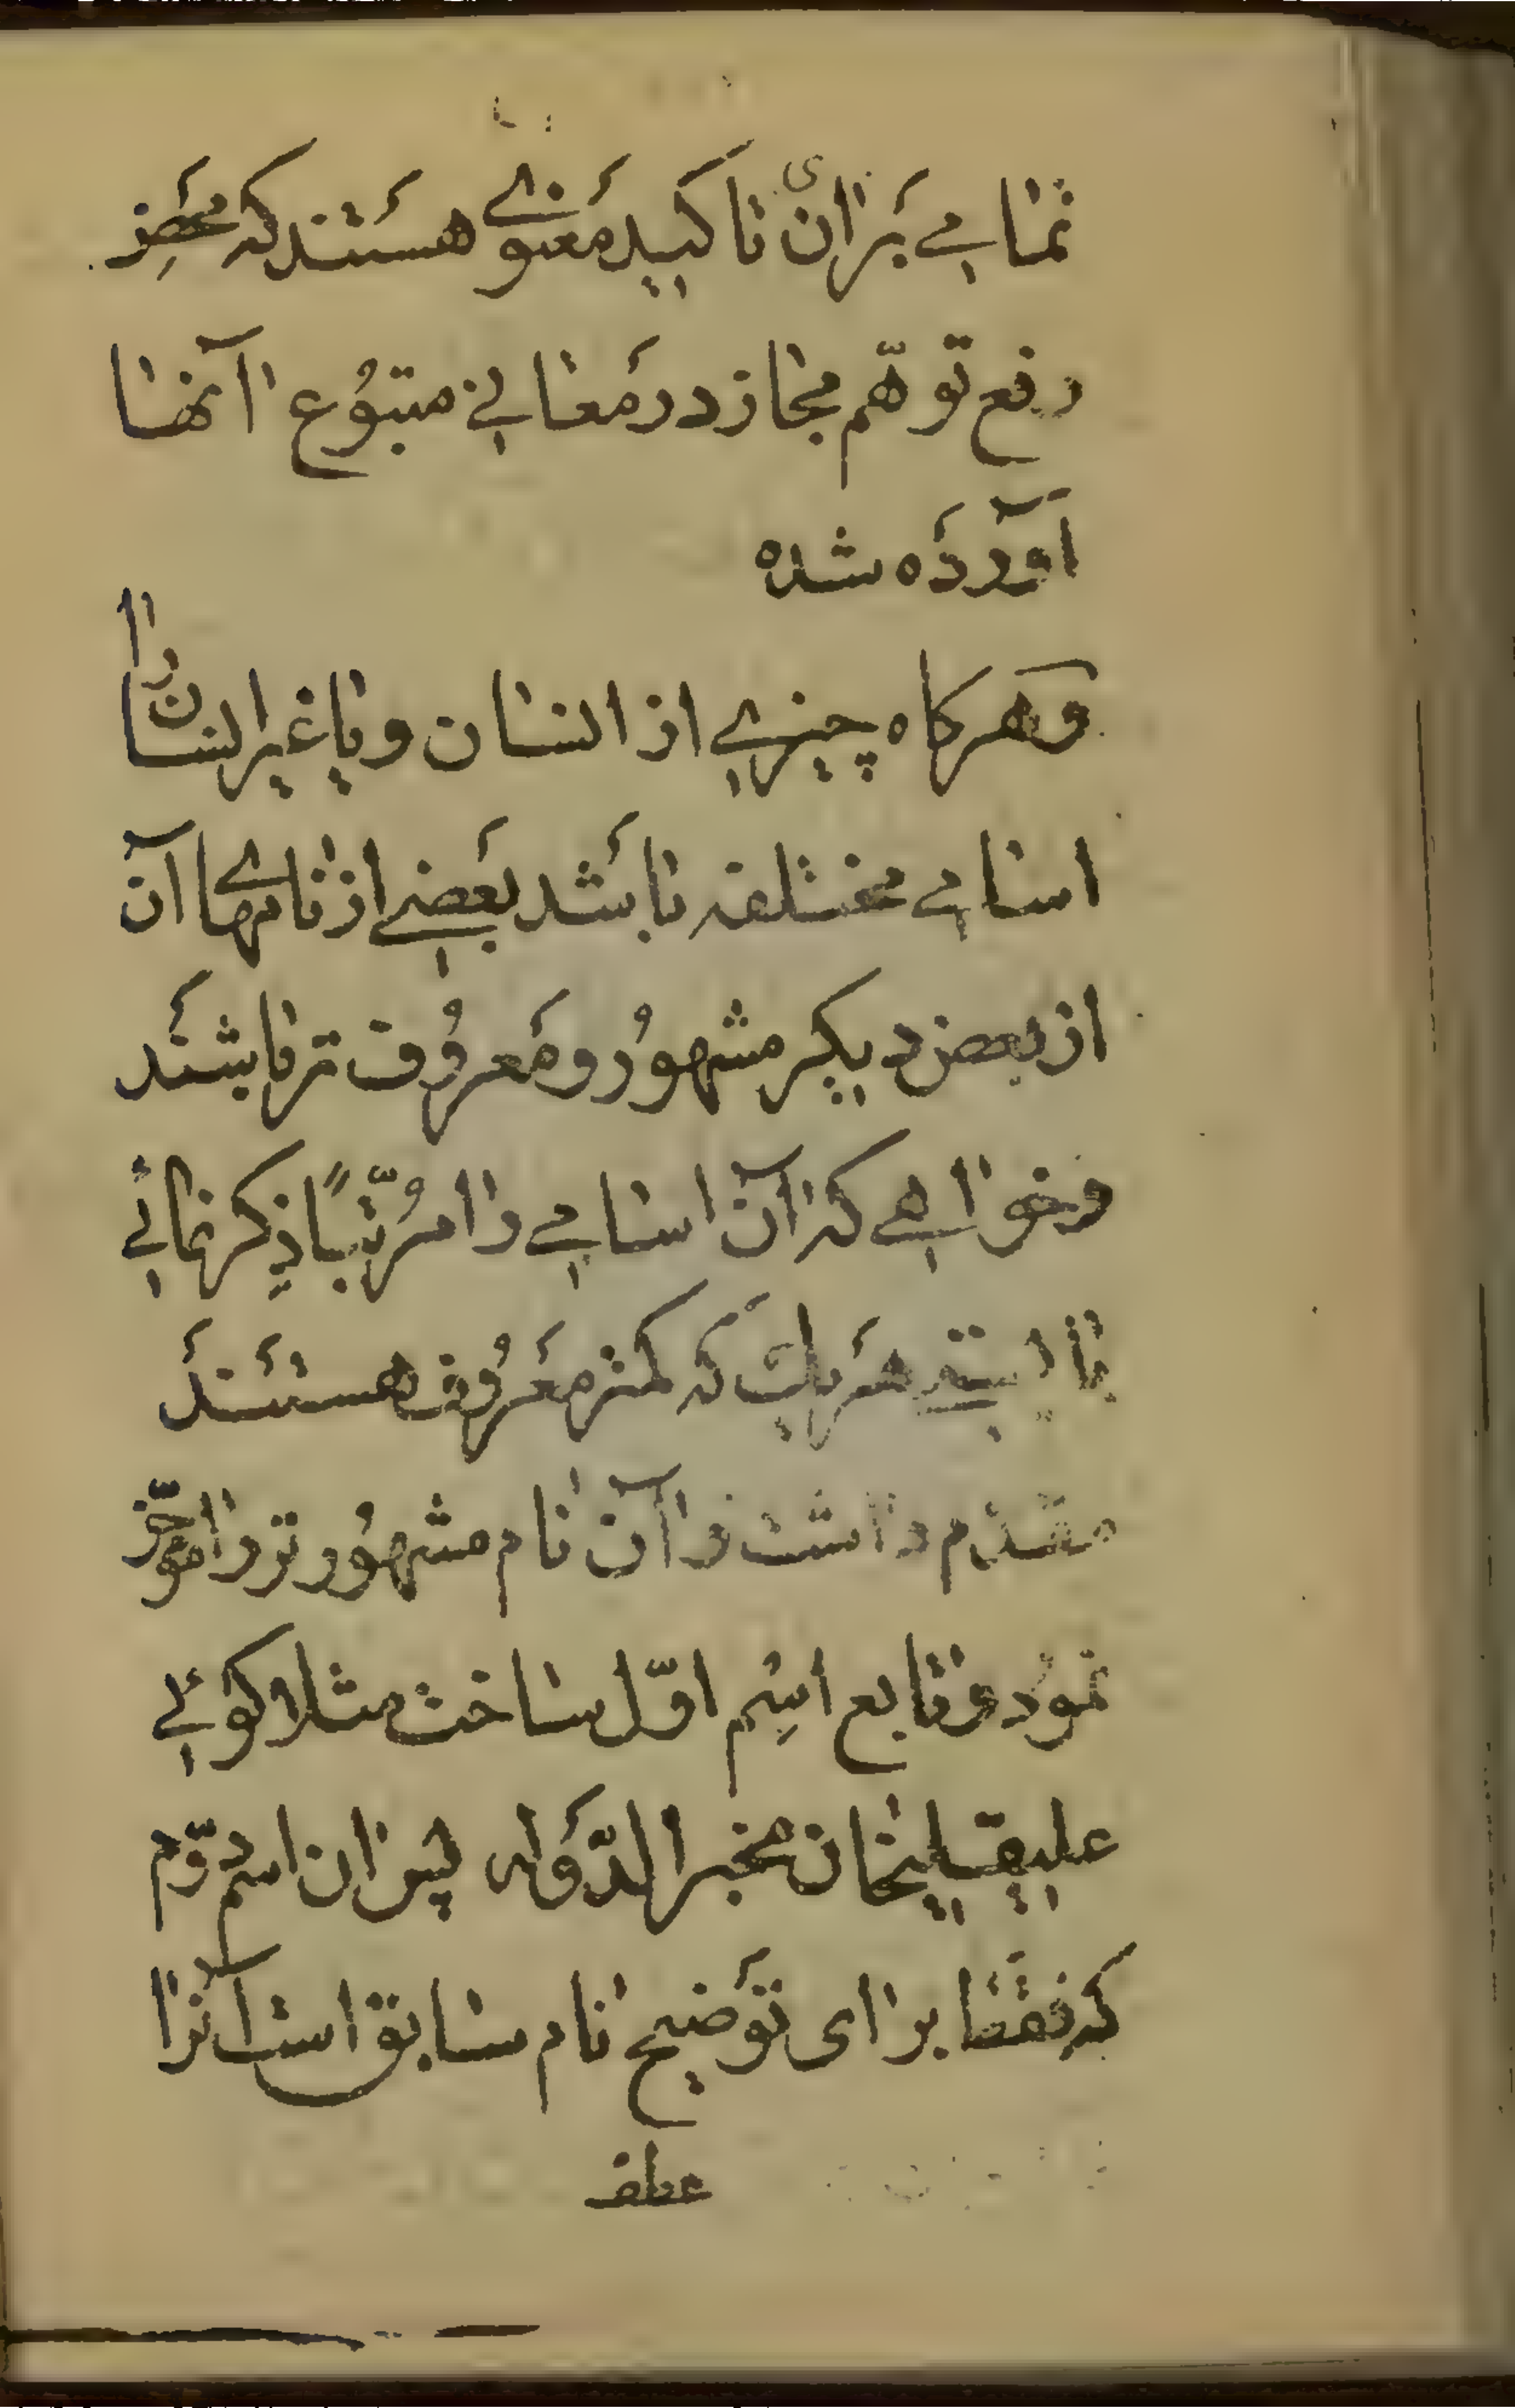 تمامی برای آن تاکید معنوی هستند که محض
رفع توهّم مجاز در معانی متبوُع آنها
آورده شده
و هرکاه چیزی از انسان و یا غیر انسان را
اسامی مختلفه باشد بعضی از نامهای آن
از بعض دیکر مشهوُر و معروُف تر باشند
و خواهی که آن اسامی را مُرتّباً ذِکر نمائی
هر یك که کمتر معروُف هستند
مقدم داشت و آن نام مشهوُر تر را موخّر
نموُد و تابع اسِم اوّل ساخت مثلا کوئی
علیقلیخان مخبر الدّوله پس ان اسم دوّم
که برای توضیح نام سابق است آنرا
عطف